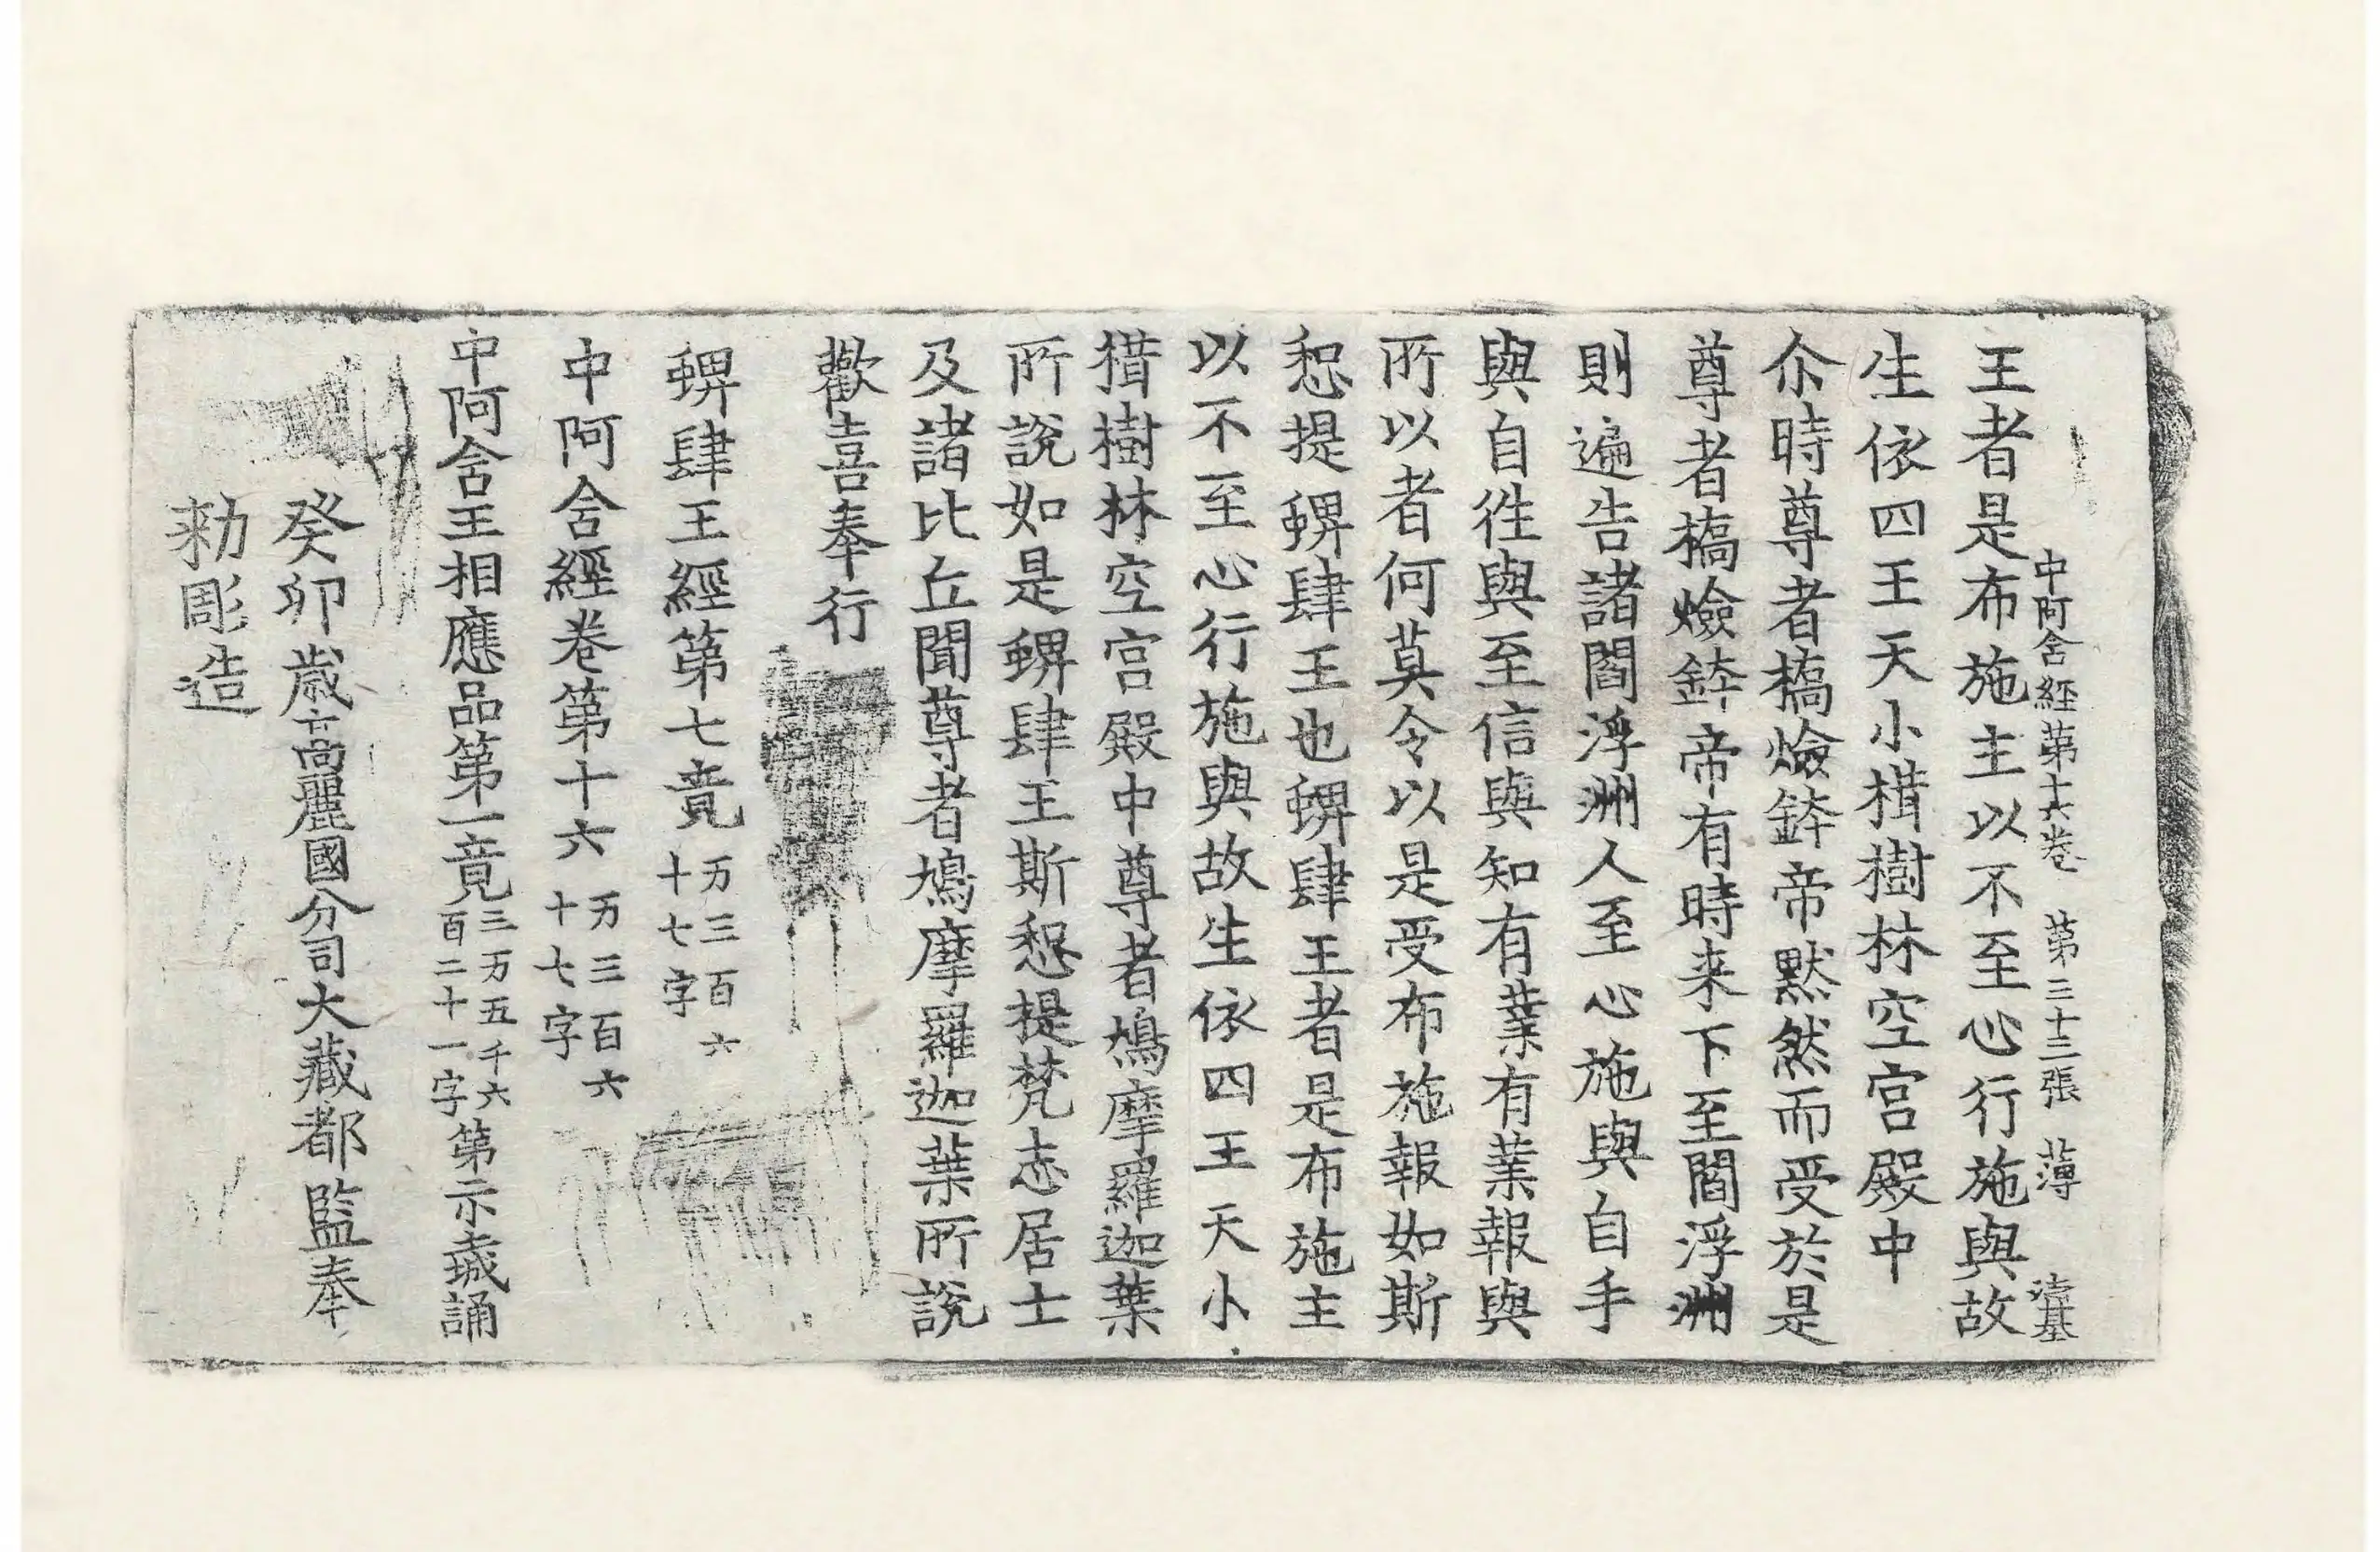 中阿含経第十六卷 第三十三張 薄
王者是布施主以不至心行施與故
生依四王天小楷樹林空宮殿中
尒時尊者橋𤍞鉢帝默然而受於是
尊者橋𤍞鉢帝有時来下至閻浮洲
則遍告諸閻浮洲人至心施與自手
與自往與至信與知有業有業報與
所以者何莫令以是受布施報如斯
惒提蜱肆王也蜱肆王者是布施主
以不至心行施與故生依四王天小
楷樹林空宮殿中尊者鳩摩羅迦葉
所說如是蜱肆王斯惒提梵志居士
及諸比丘聞尊者鳩摩羅迦葉所說
歡喜奉行
蜱肆王經第七竟 万三百六十七字
中阿含經卷第十六 万三百六十七字
中阿含王相應品第一竟 三万五千六百二十一字 第一示𡻕誦
癸卯歳高麗國分司大藏都監奉
勑彫造